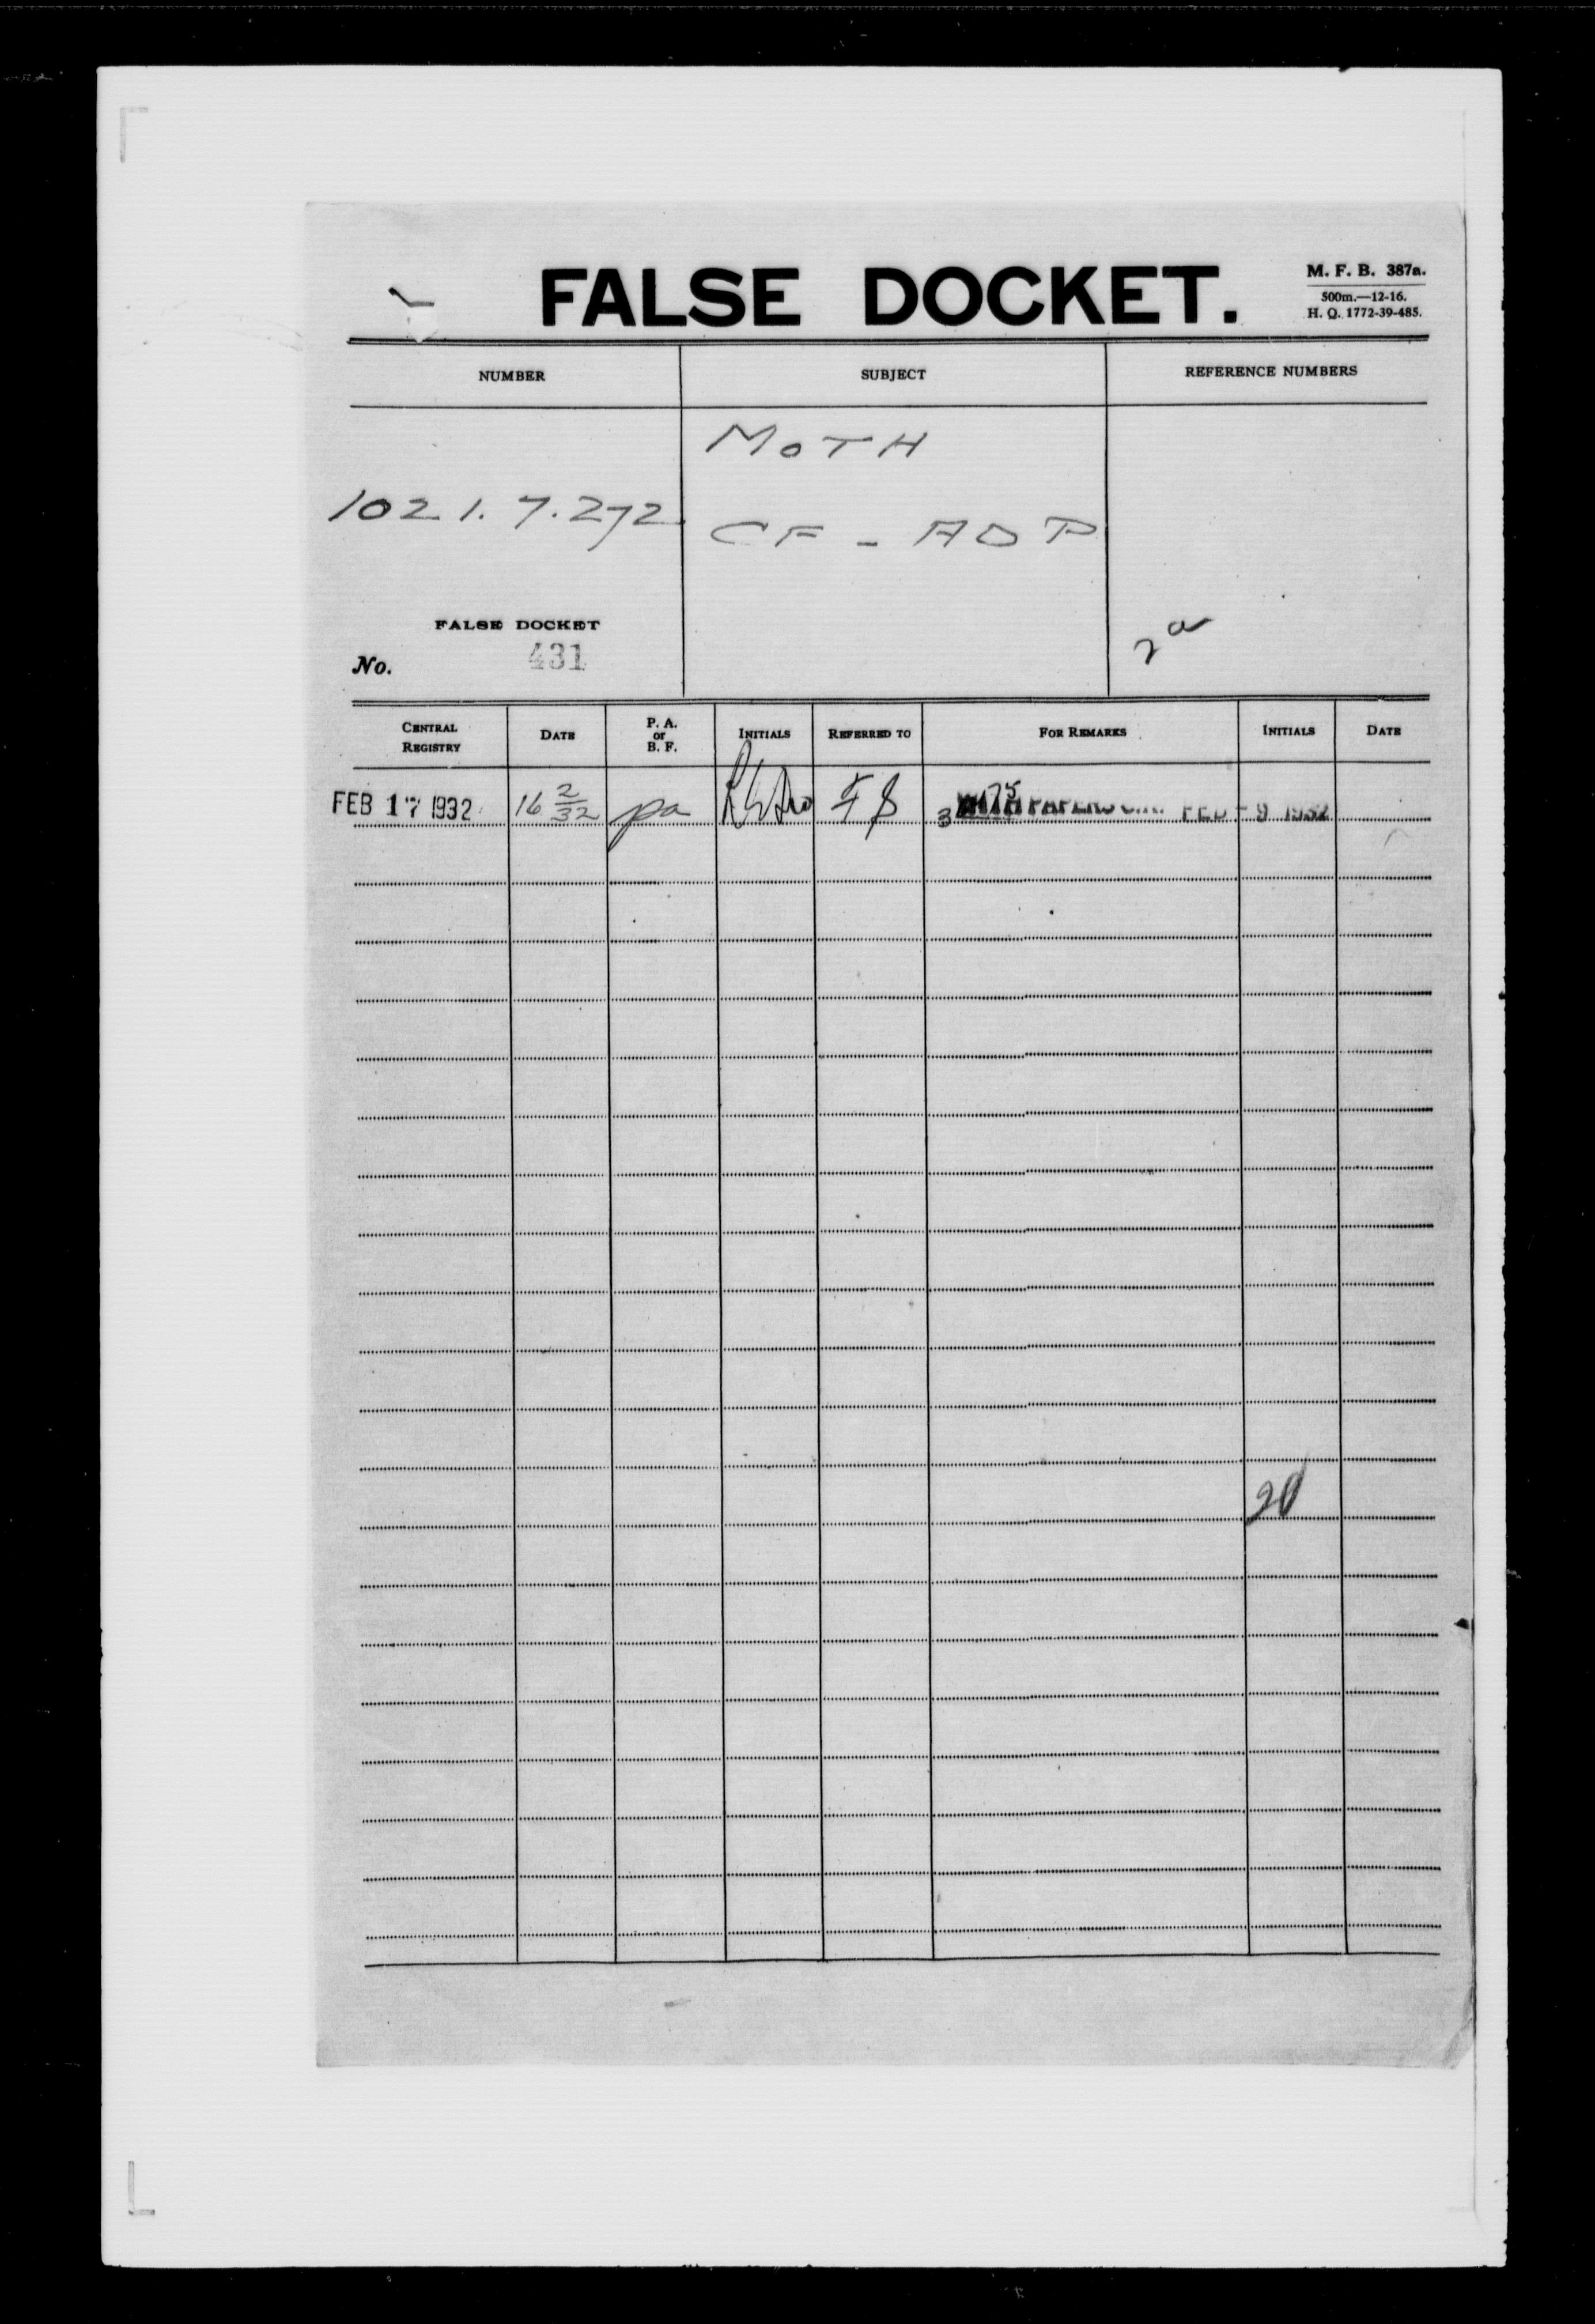 FALSE DOCKET.
M. F. B. 387a.
500m.—12-16.
H. Q. 1772-39-485.
NUMBER SUBJECT REFERENCE NUMBERS
MOTH
1021.7.272
CF - ADP
FALSE DOCKET
No. 431
2a
CENTRAL REGISTRY DATE P. A. or B. F. INITIALS REFERRED TO FOR REMARKS INITIALS DATE
FEB 17 1932 16 2/32 pa PAPERS FEB - 9 1932